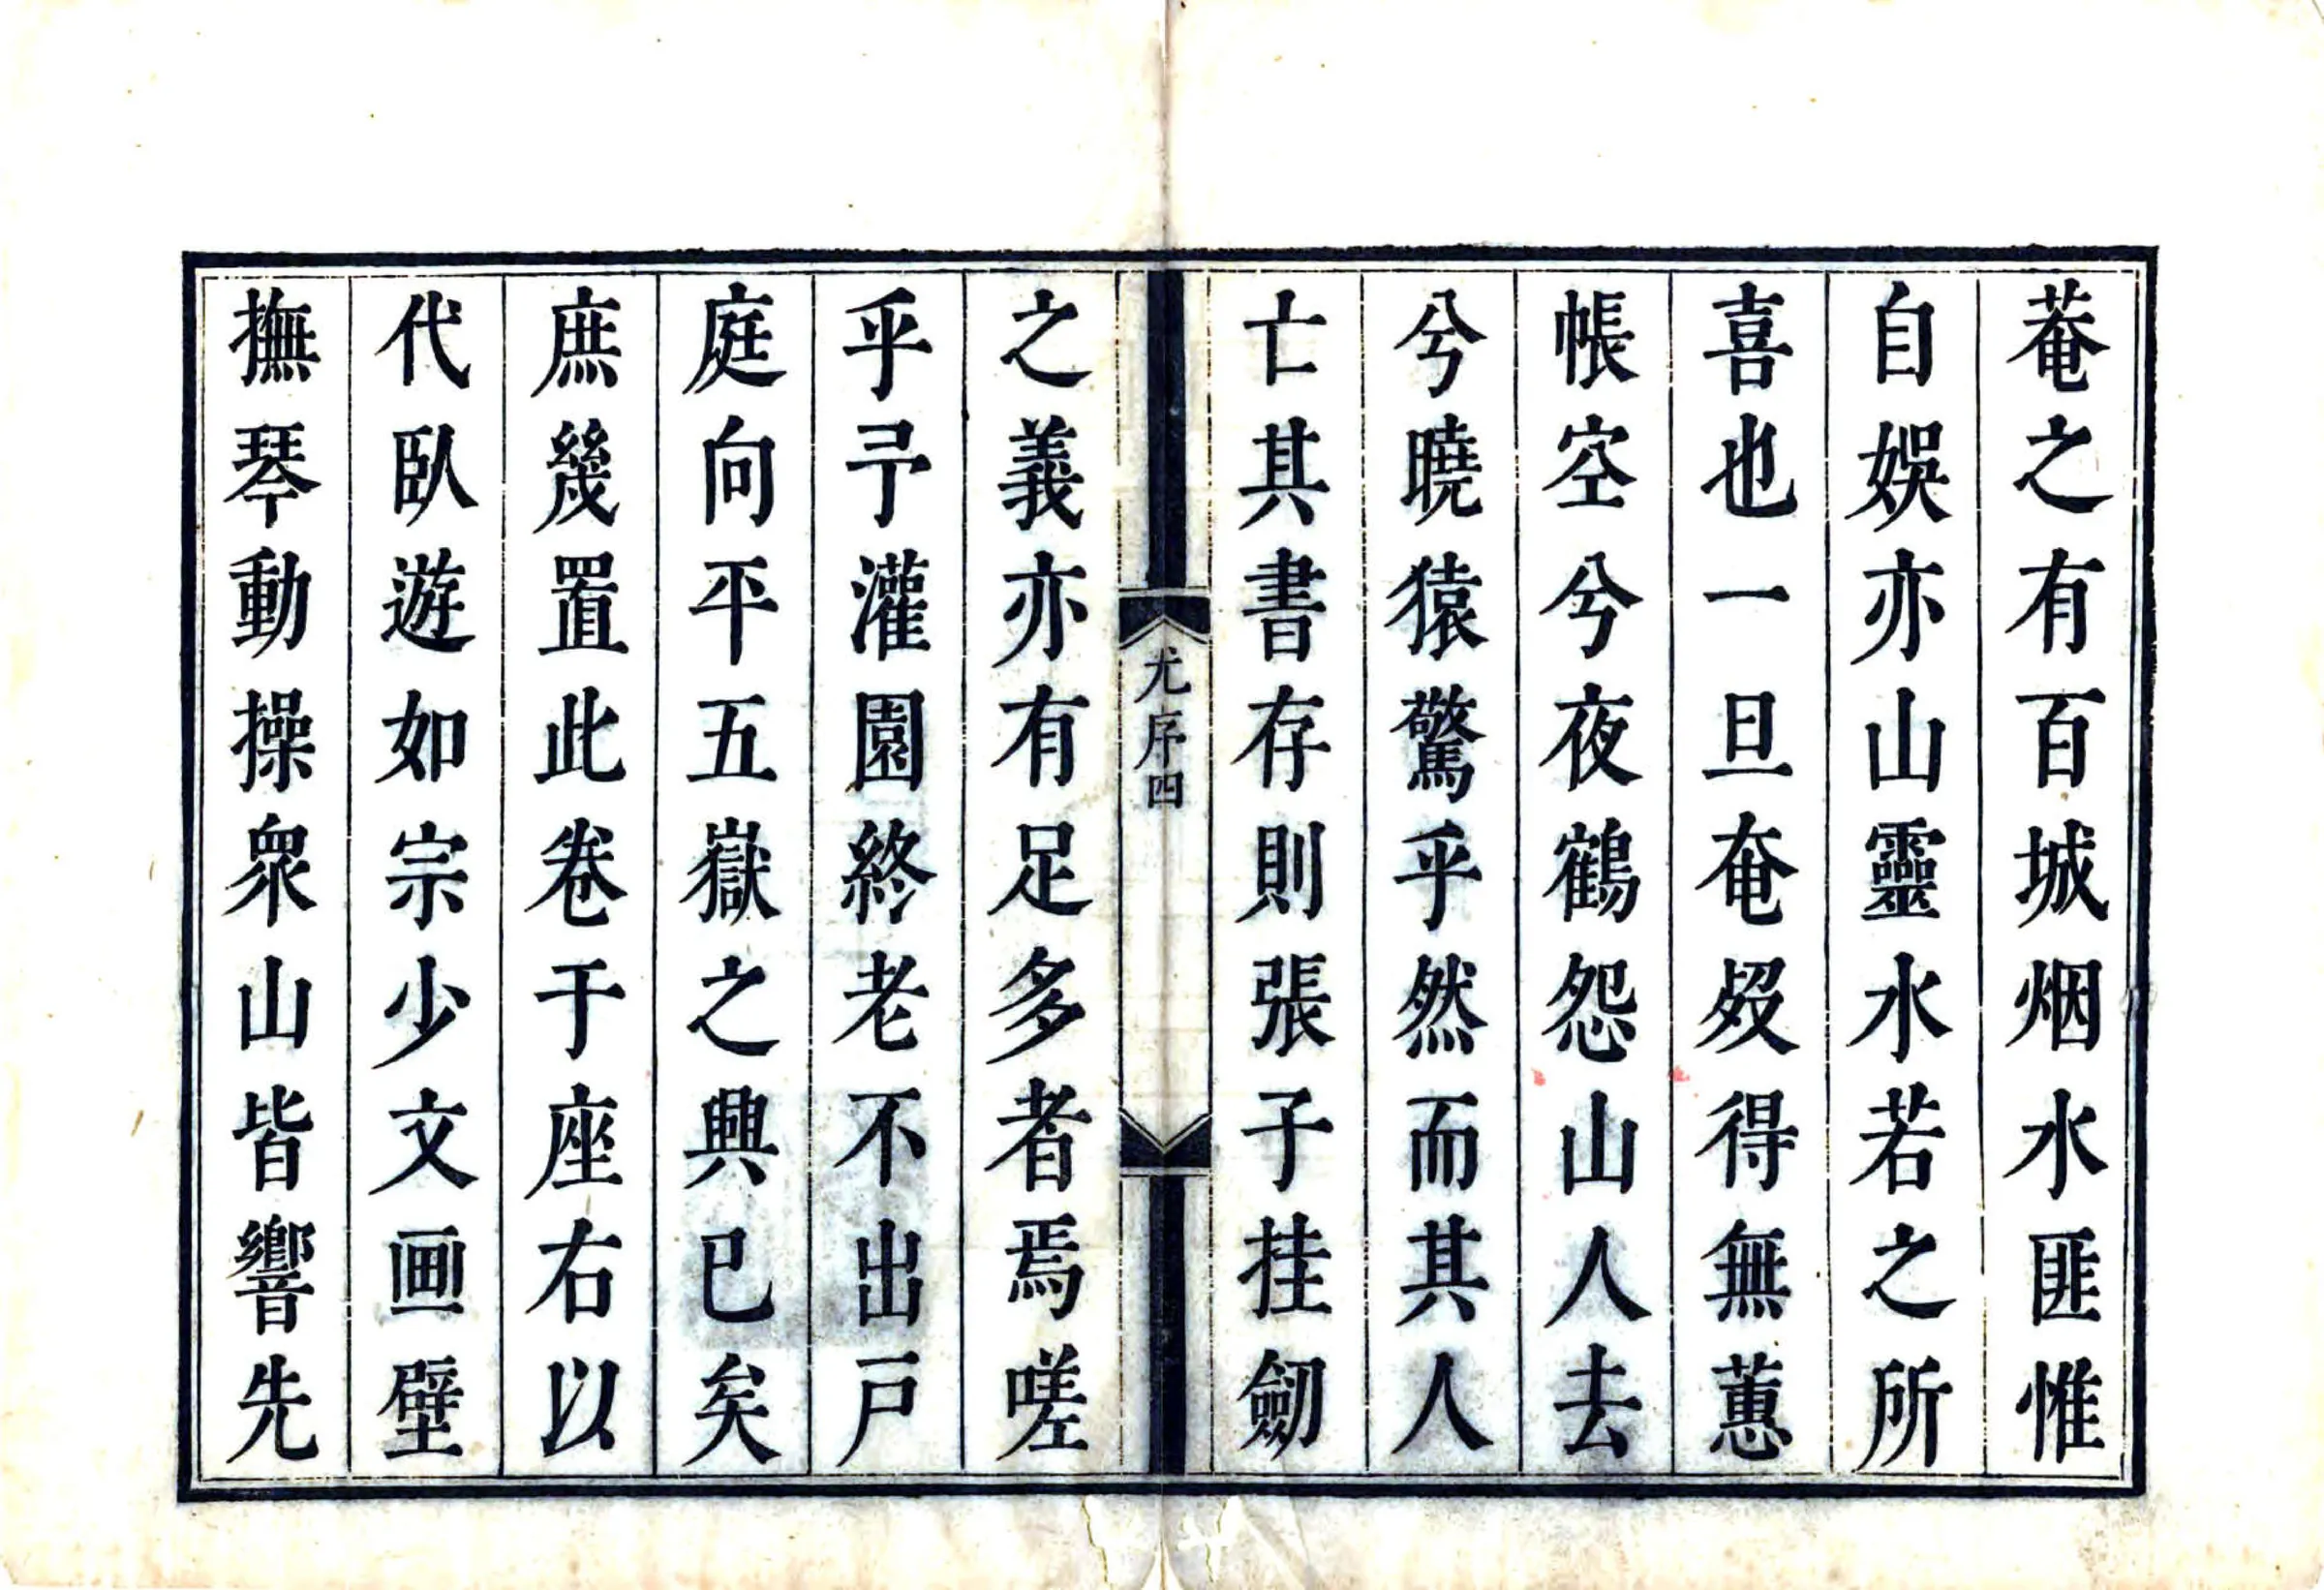 菴之有百城烟水匪惟
自娛亦山靈水若之所
喜也一旦奄歿得無蕙
帳空兮夜鶴怨山人去
兮曉猿驚乎然而其人
亡其書存則張子挂劒
尤序四
之義亦有足多者焉嗟
乎予灌園終老不出戸
庭向平五嶽之興已矣
庶幾置此卷于座右以
代臥遊如宗少文画壁
撫琴動操衆山皆響先